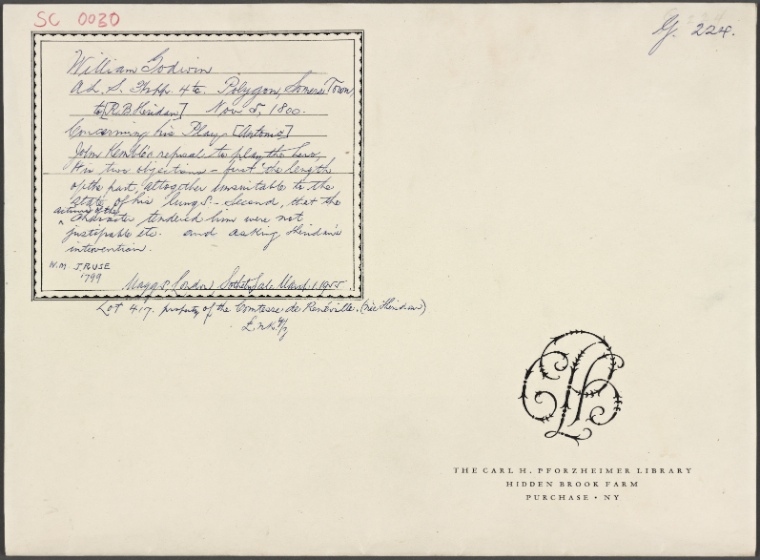 SC 0030
G. 224.
William Godwin
A.L.S. 3½pp. 4to. Polygon, Somers Town,
to [R.B Sheridan] Nov 5, 1800.
Concerning his Play [Antonio]
John Kemble's refusal to play the hero,
His two objections – first the length
of the part, altogether unsuitable to the
state of his lungs – Second, that the
actions of the
character tendered him were not
justifiable etc. and asking Sheridan's
intervention.
W.M J. RUSE
1799
Maggs, London, Sotheby Sale March 1 1955
Lot 417. property of the Comtesse de Renéville, (née Sheridan)
THE CARL H. PFORZHEIMER LIBRARY
HIDDEN BROOK FARM
PURCHASE • NY